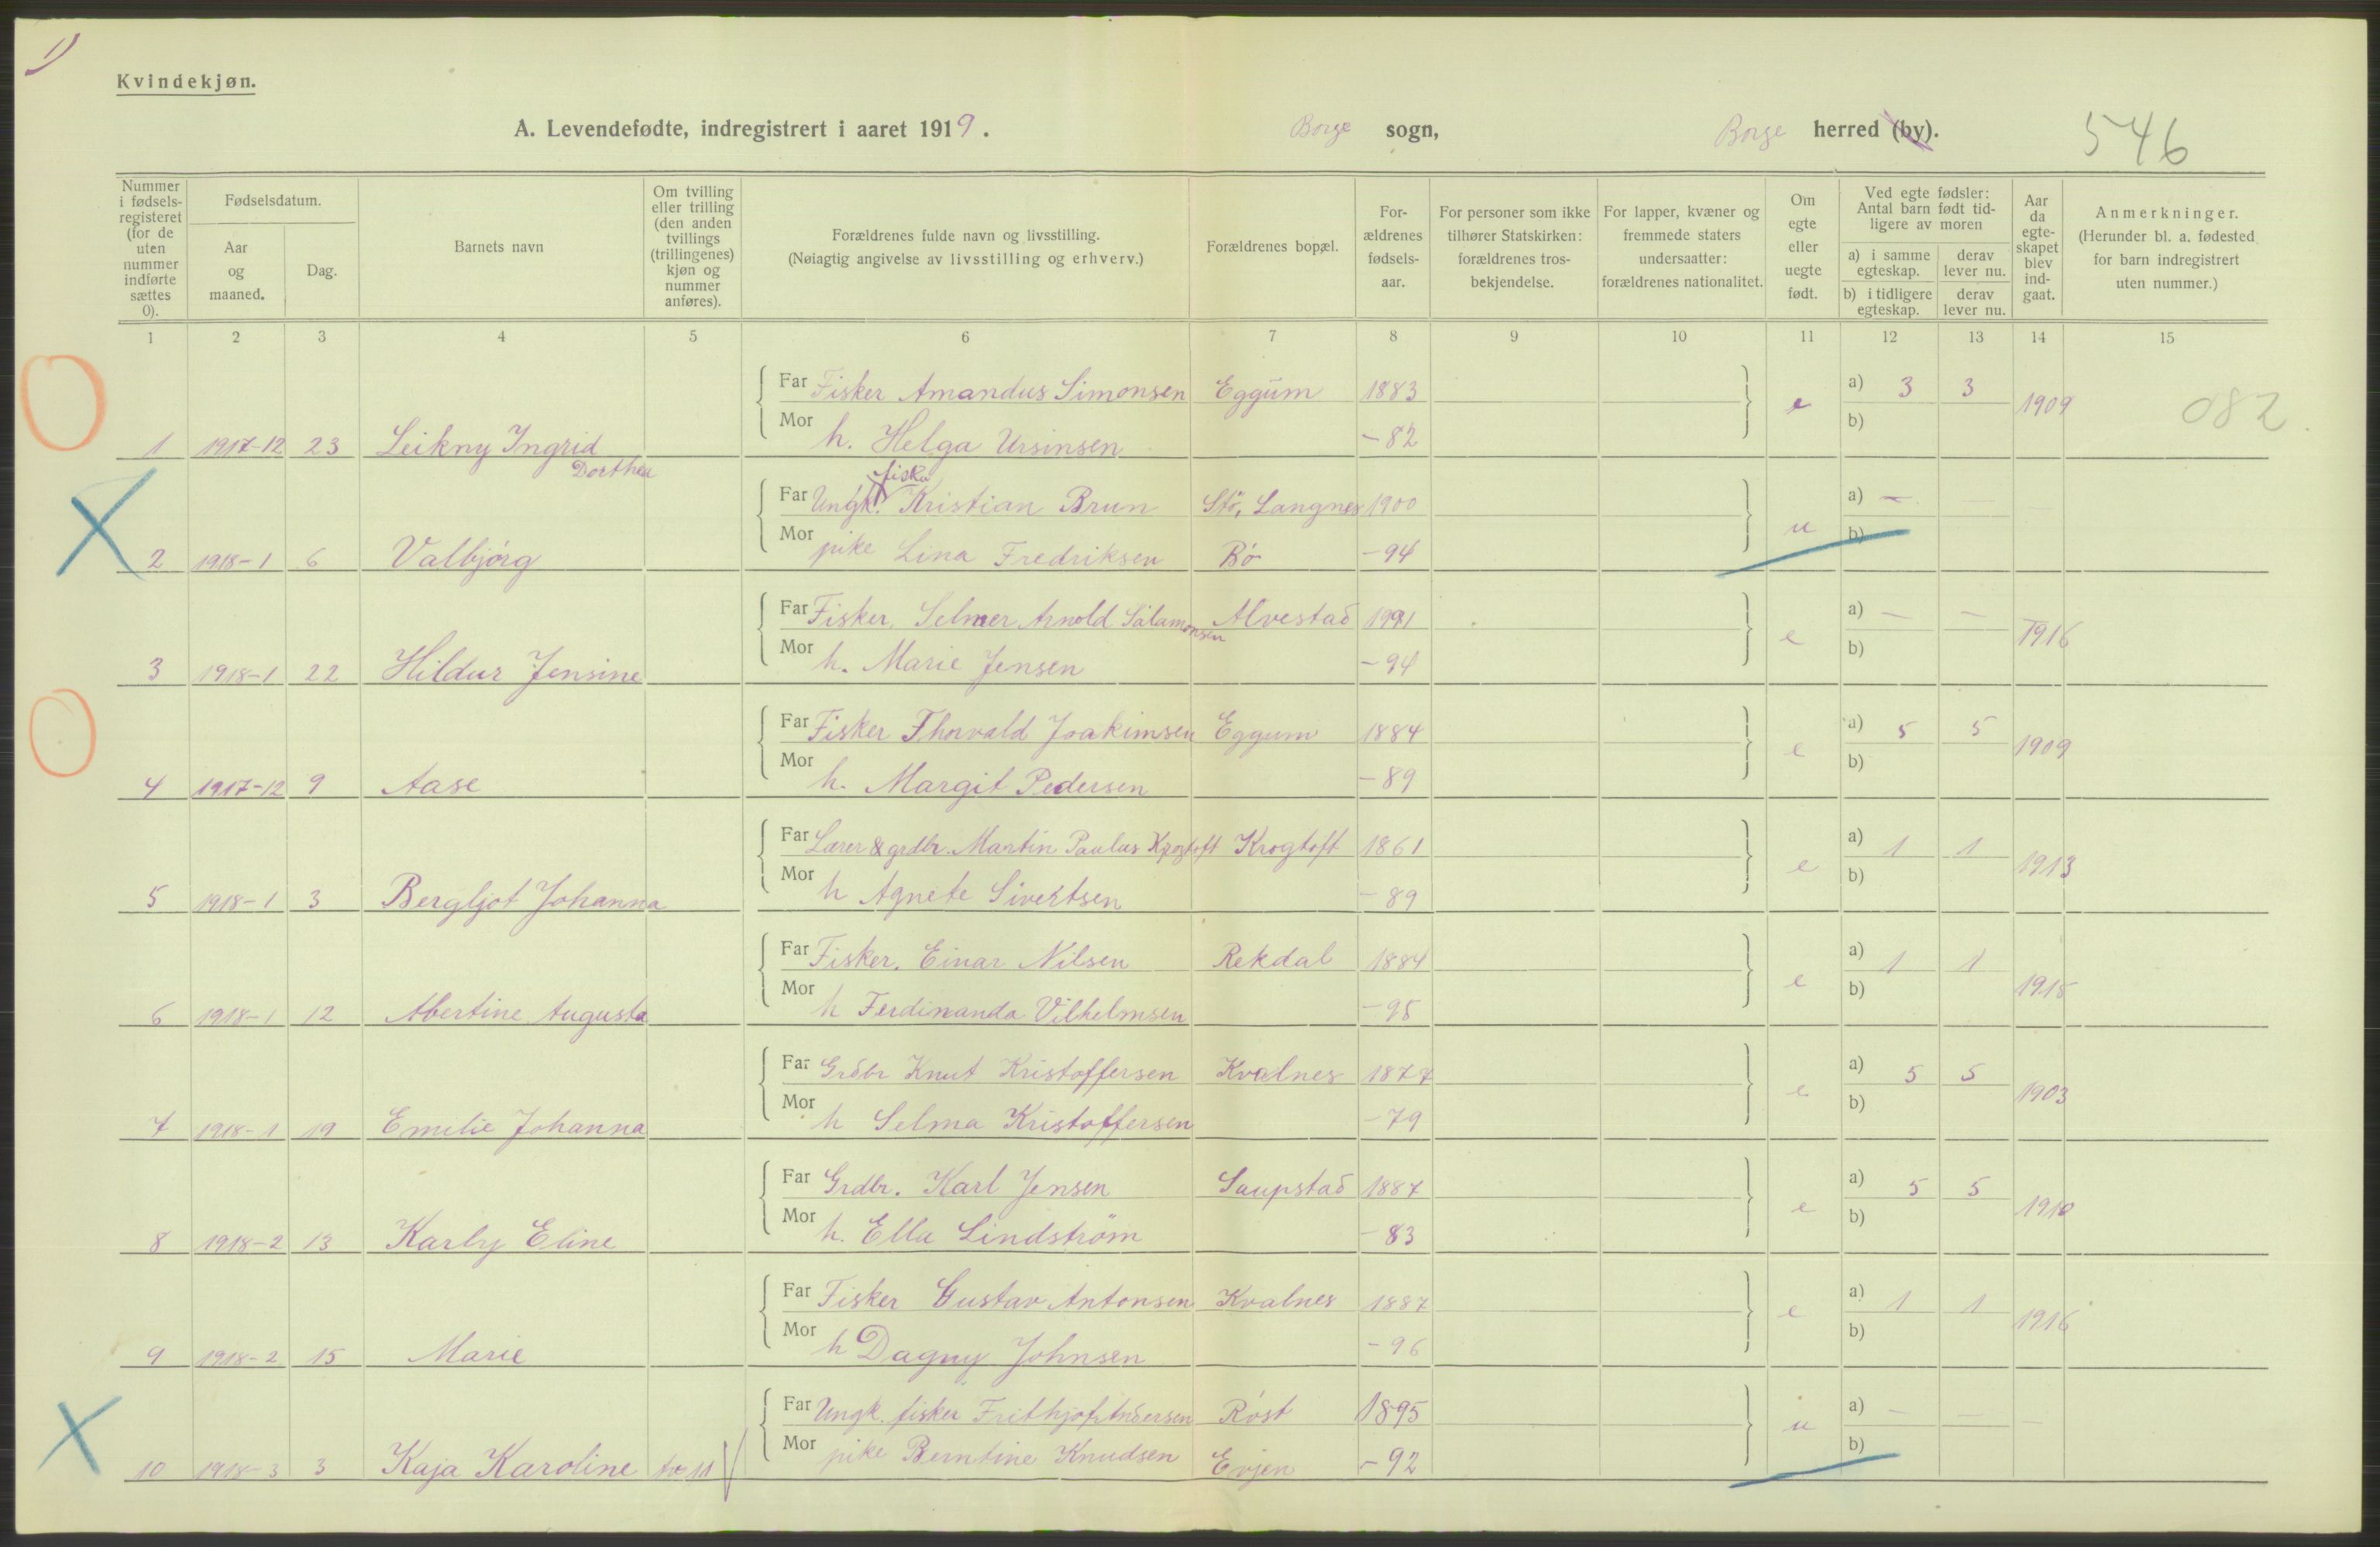 1)
Kvindekjøn.
A. Levendefødte, indregistrert i aaret 1919. Borge sogn, Borge herred (by). 546
Nummer i fødsels-registeret (for de uten nummer indførte sættes 0).
Fødselsdatum.
Aar og maaned.
Dag.
Barnets navn
Om tvilling eller trilling (den anden tvillings (trillingenes) kjøn og nummer anføres).
Forældrenes fulde navn og livsstilling.
(Nøiagtig angivelse av livsstilling og erhverv.)
Forældrenes bopæl.
For-ældrenes fødsels-aar.
For personer som ikke tilhører Statskirken: forældrenes tros-bekjendelse.
For lapper, kvæner og fremmede staters undersaatter: forældrenes nationalitet.
Om egte eller uegte født.
Ved egte fødsler: Antal barn født tid-ligere av moren
a) i samme egteskap. derav lever nu.
b) i tidligere egteskap. derav lever nu.
Aar da egte-skapet blev ind-gaat.
Anmerkninger.
(Herunder bl. a. fødested for barn indregistrert uten nummer.)
1 2 3 4 5 6 7 8 9 10 11 12 13 14 15
Far Fisker Amandus Simonsen Eggum 1883 e a) 3 3 1909 082
Mor h. Helga Ursinsen - 82 b)
1 1917-12 23 Leikny Ingrid Dorthea
Far Ungk. fisker Kristian Brun Stö, Langnes 1900 u a) -
Mor pike Lina Fredriksen Bö - 94 b)
2 1918-1 6 Valbjörg
Far Fisker, Selmer Arnold Salamonsen Alvestad 1991 e a) - - 1916
Mor h. Marie Jensen - 94 b)
3 1918-1 22 Hildur Jensine
Far Fisker Thorvald Joakimsen Eggum 1884 e a) 5 5 1909
Mor h. Margit Pedersen - 89 b)
4 1917-12 9 Aase
Far Lærer & grdbr. Martin Paulus Krogtoft Krogtoft 1861 e a) 1 1 1913
Mor h Agnete Sivertsen - 89 b)
5 1918-1 3 Bergljot Johanna
Far Fisker. Einar Nilsen Rekdal 1884 e a) 1 1 1915
Mor h Ferdinanda Vilhelmsen - 95 b)
6 1918-1 12 Abertine Augusta
Far Grdbr Knut Kristoffersen Kvalnes 1877 e a) 5 5 1903
Mor h Selma Kristoffersen - 79 b)
7 1918-1 19 Emelie Johanna
Far Grdbr. Karl Jensen Saupstad 1887 e a) 5 5 1910
Mor h. Ella Lindström - 83 b)
8 1918-2 13 Karly Eline
Far Fisker Gustav Antonsen Kvalnes 1887 e a) 1 1 1916
Mor h Dagny Johnsen - 96 b)
9 1918-2 15 Marie
Far Ungk. fisker Frithjof Andersen Röst 1895 u a) - - -
Mor pike Berntine Knudsen Evjen - 92 b)
10 1918-3 3 Kaja Karoline tv. 11